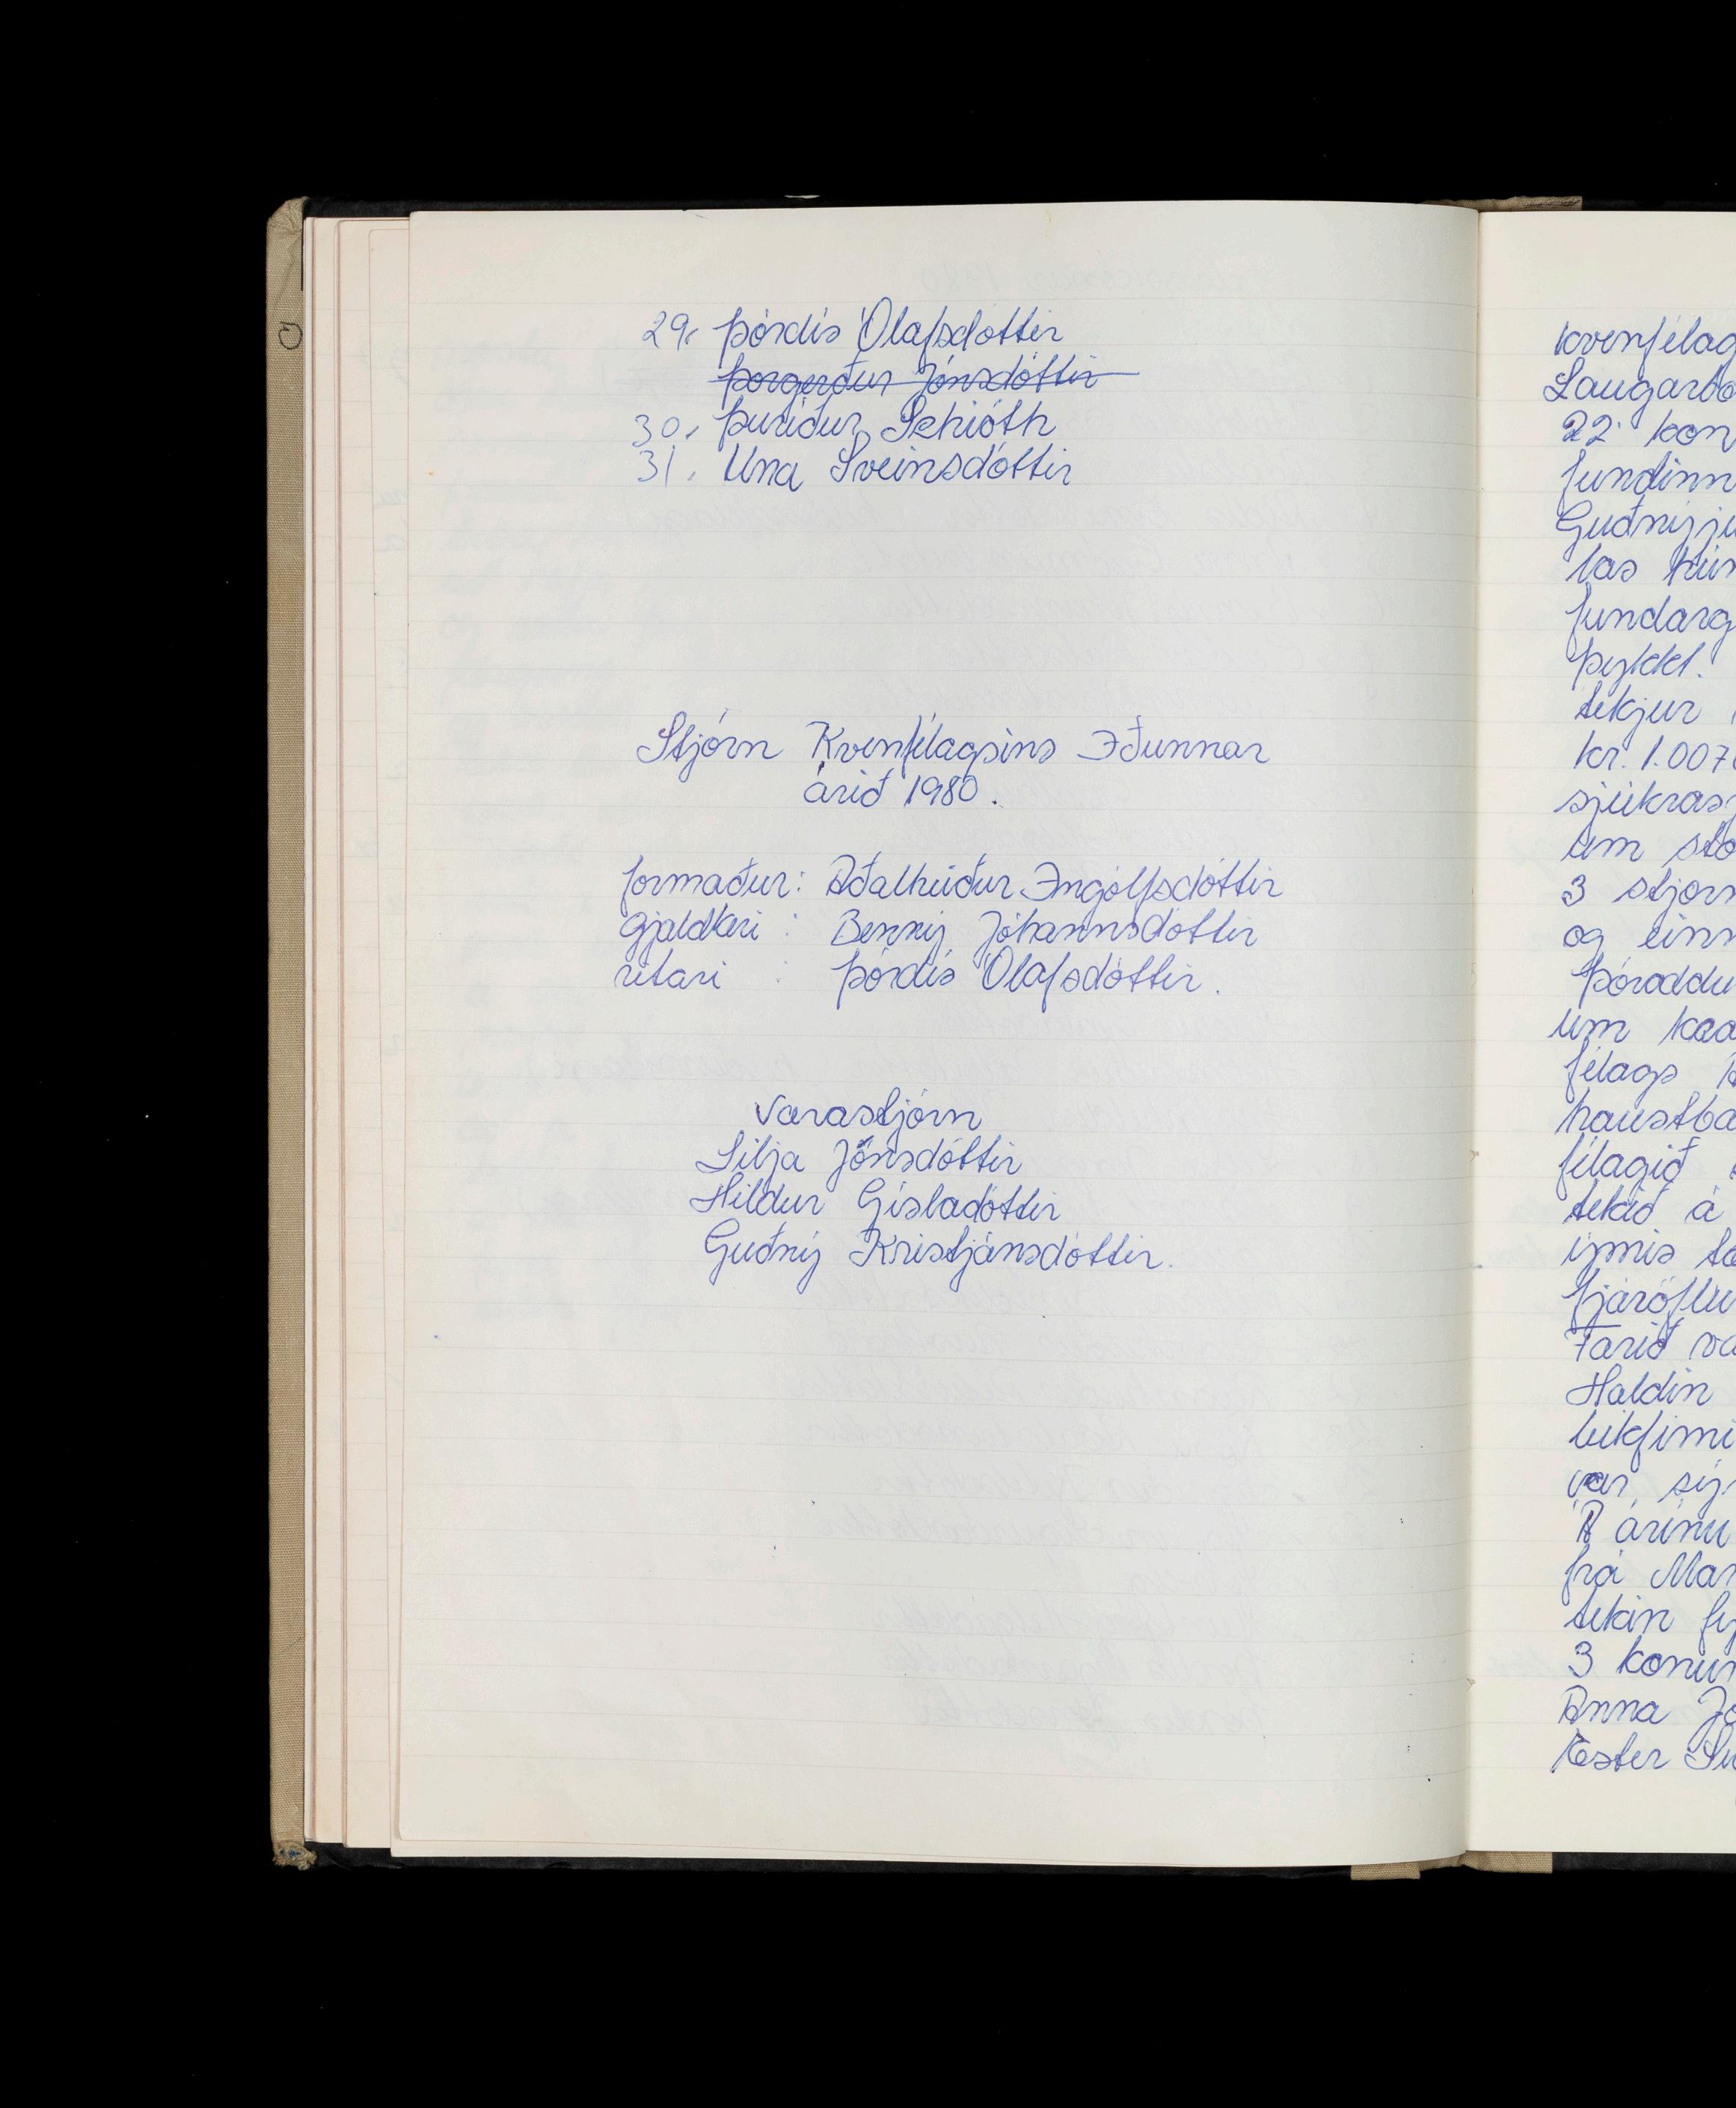 29. Þórdís Ólafsdóttir
Þorgerður Jónsdóttir
30. Þuríður Schiöth
31. Una Sveinsdóttir
Stjórn Kvenfélagsins Iðunnar
árið 1980.
formaður: Aðalheiður Ingólfsdóttir
gjaldkeri : Benný Jóhannsdóttir
ritari : Þórdís Ólafsdóttir.
Varastjórn
Lilja Jónsdóttir
Hildur Gísladóttir
Guðný Kristjánsdóttir.
kvenfélag
Laugarbo
22. kon
fundinn
Guðnýju
las hún
fundarg
þykkt.
tekjur
kr. 1.007
sjúkras
um sto
3 stjorn
og einn
Þóroddu
um kaa
félags
haustba
félagið
tekið á
ýmis
fjáröflu
Farið va
Haldin
leikfimi
var sý
Á árinu
frá Mar
tekin
3 konur
Anna Jó
Ester